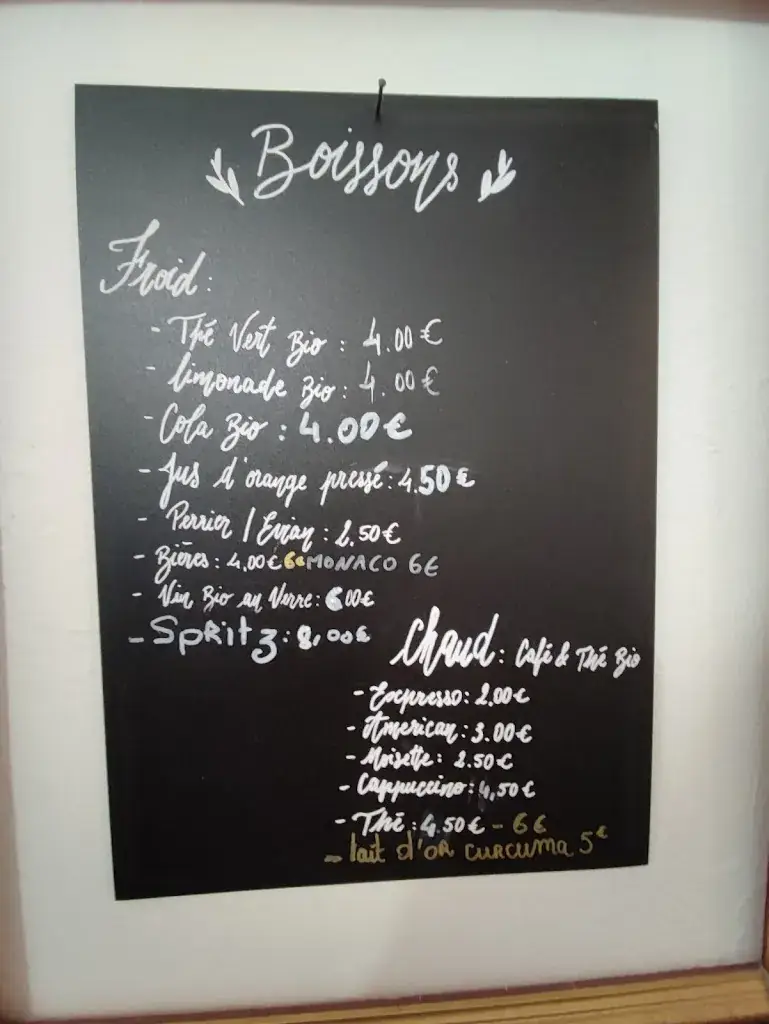 Boissons
Froid :
- Thé Vert Bio : 4.00 €
- limonade Bio : 4.00 €
- Cola Bio : 4.00 €
- Jus d'orange pressé : 4.50 €
- Perrier / Evian : 2.50 €
- Bières : 4.00 € 6€ MONACO 6€
- Vin Bio au Verre : 6.00 €
- Spritz : 8,00 €
Chaud : Café & Thé Bio
- Expresso : 2.00 €
- American : 3.00 €
- Noisette : 2.50 €
- Cappuccino : 4,50 €
- Thé : 4.50 € - 6€
- lait d'OR CURCUMA 5€